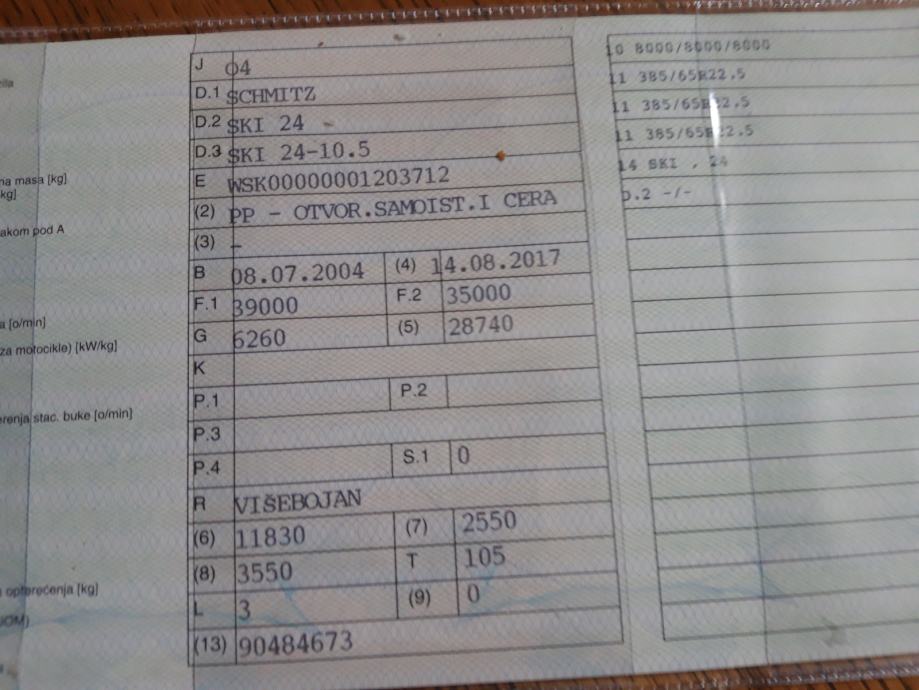 J 04
D.1 SCHMITZ
D.2 SKI 24
D.3 SKI 24-10.5
E WSK00000001203712
(2) PP - OTVOR.SAMOIST.I CERA
(3) -
B 08.07.2004 (4) 14.08.2017
F.1 39000 F.2 35000
G 6260 (5) 28740
K
P.1 P.2
P.3
P.4 S.1 0
R VIŠEBOJAN
(6) 11830 (7) 2550
(8) 3550 T 105
L 3 (9) 0
(13) 90484673
10 8000/8000/8000
11 385/65R22.5
11 385/65R22.5
11 385/65R22.5
14 SKI , 24
D.2 -/-
masa [kg]
kg]
pod A
[o/min]
za motocikle) [kW/kg]
stac. buke [o/min]
opterećenja [kg]